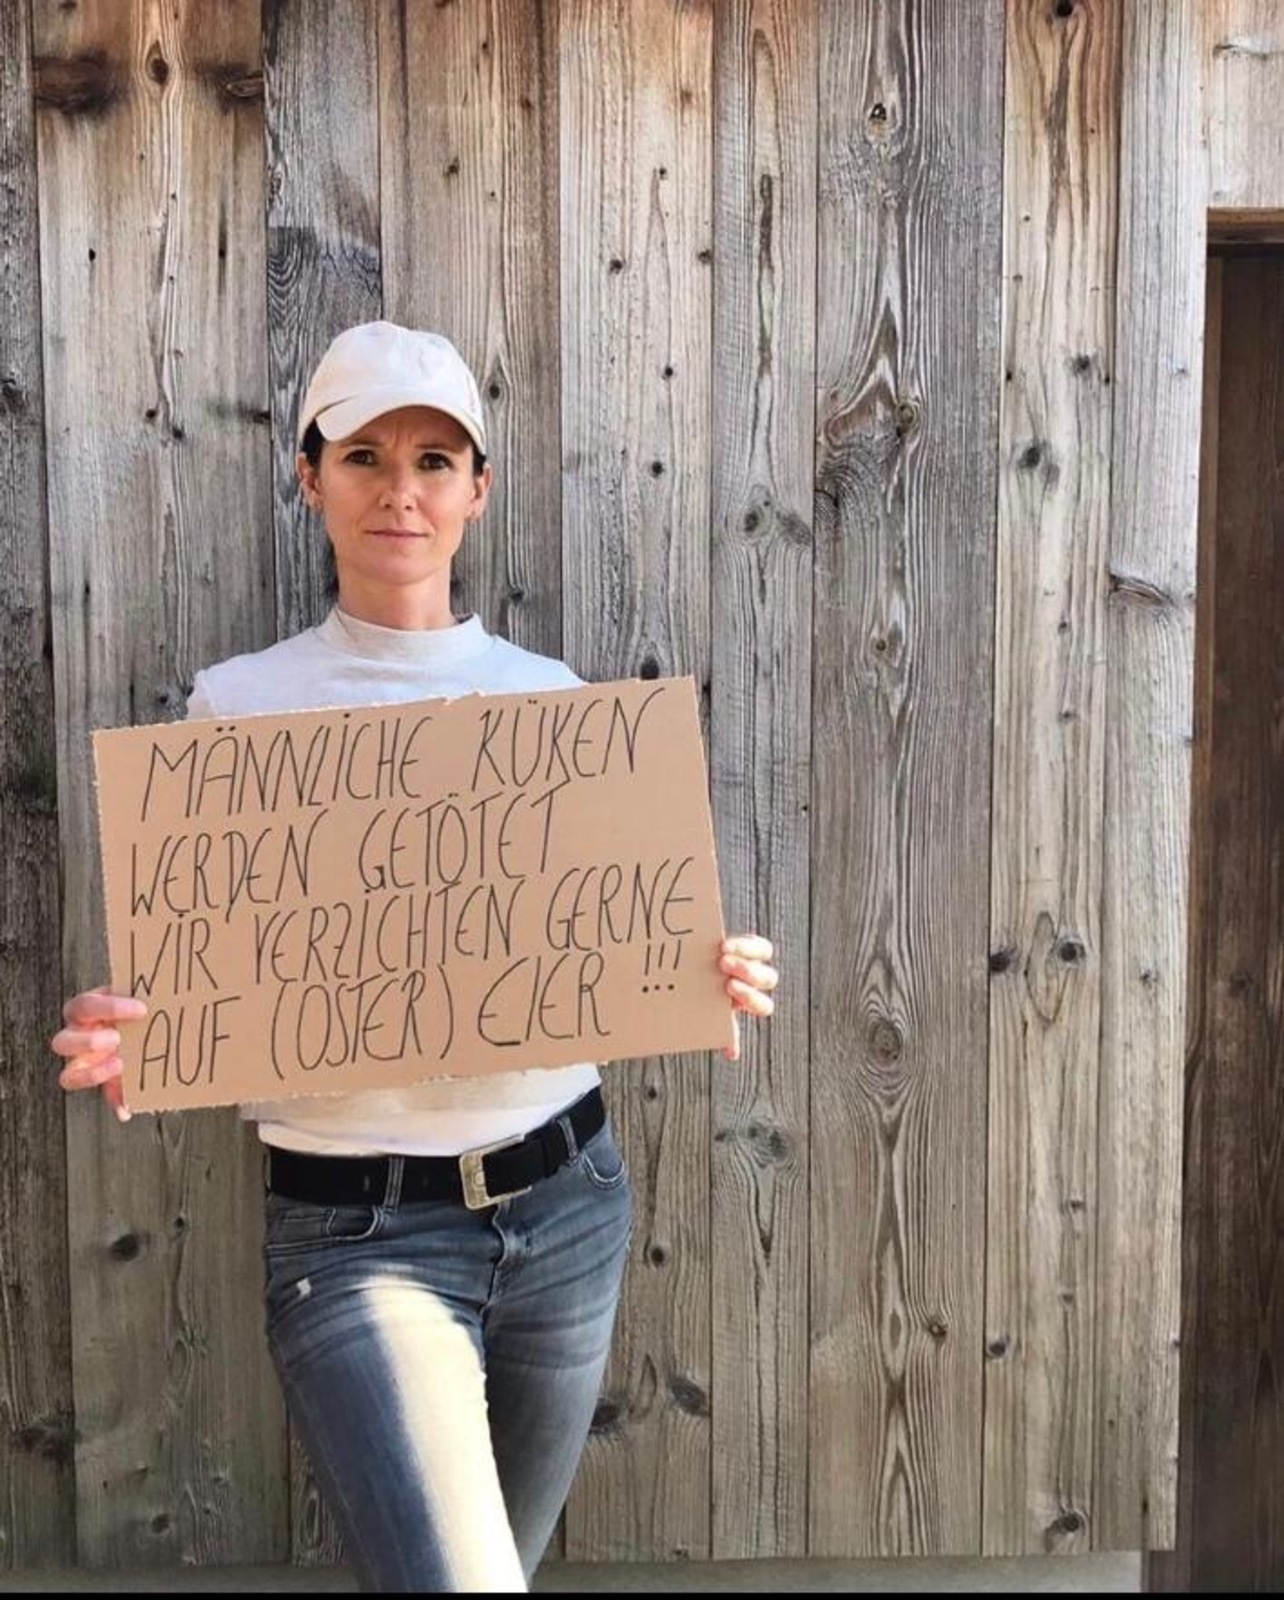 MÄNNLICHE KÜKEN
WERDEN GETÖTET
WIR VERZICHTEN GERNE
AUF (OSTER) EIER !!!